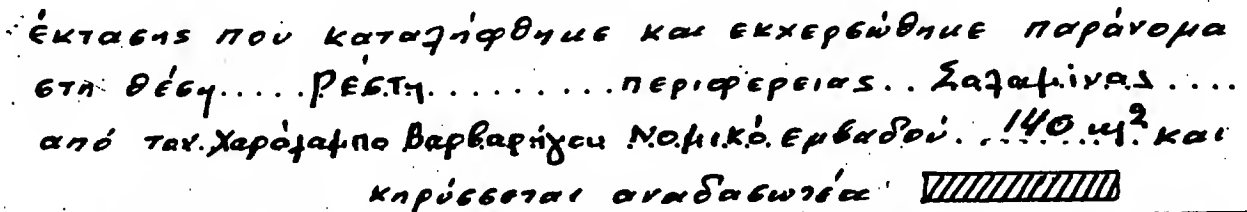 έκτασης που καταλήφθηκε και εκχερσώθηκε παράνομα
στη θέση.....ΡΕΣΤΗ.........περιφέρειας..Σαλαμίνας....
από τον.Χαράλαμπο Βαρβαρήγου Νομικό.εμβαδού...140 μ² και
κηρύσσεται αναδασωτέα